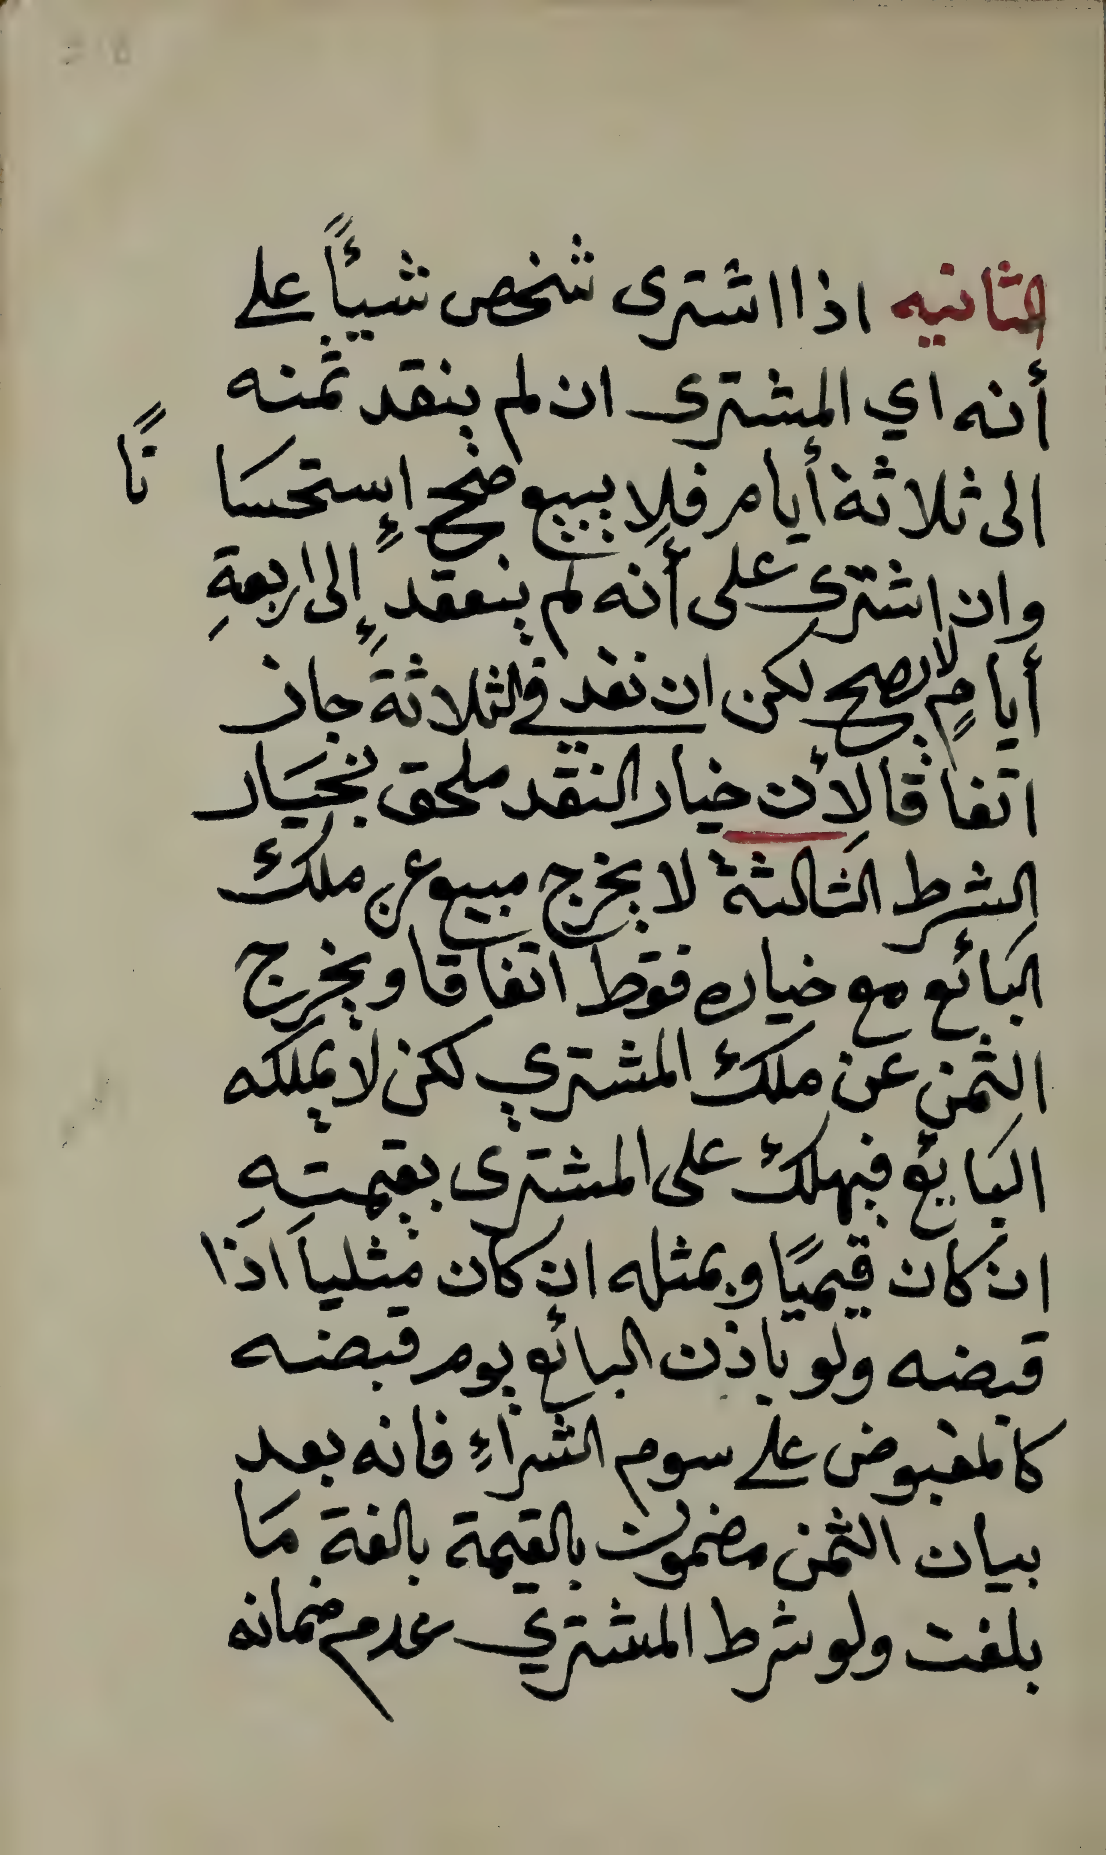 الثانيه اذا اشترى شخص شيئاً على
أنه اي المشترى ان لم ينقد ثمنه
الى ثلاثة أيام فلا بيع صح إستحسا نًا
وان اشترى على أنه لم ينعقد إلى اربعةِ
أيامٍ لا يصح لكن ان نقد في الثلاثة جاز
اتفاقا لأن خيار النقد ملحق بخيَار
الشرط الثالثة لا يخرج مبيع عن ملك
البَائع مع خياره فقط اتفاقا ويخرج
الثمن عن ملك المشتري لكن لا يملكه
البَايع فيهلك على المشترى بقيمتهِ
ان كان قيميًا وبمثله ان كان مثلياً اذا
قبضه ولو باذن البائع يوم قبضه
كالمقبوض على سوم الشراءِ فانه بعد
بيان الثمن مضمون بالقيمة بالغة مَا
بلغت ولو شرط المشتري عدم ضمانه